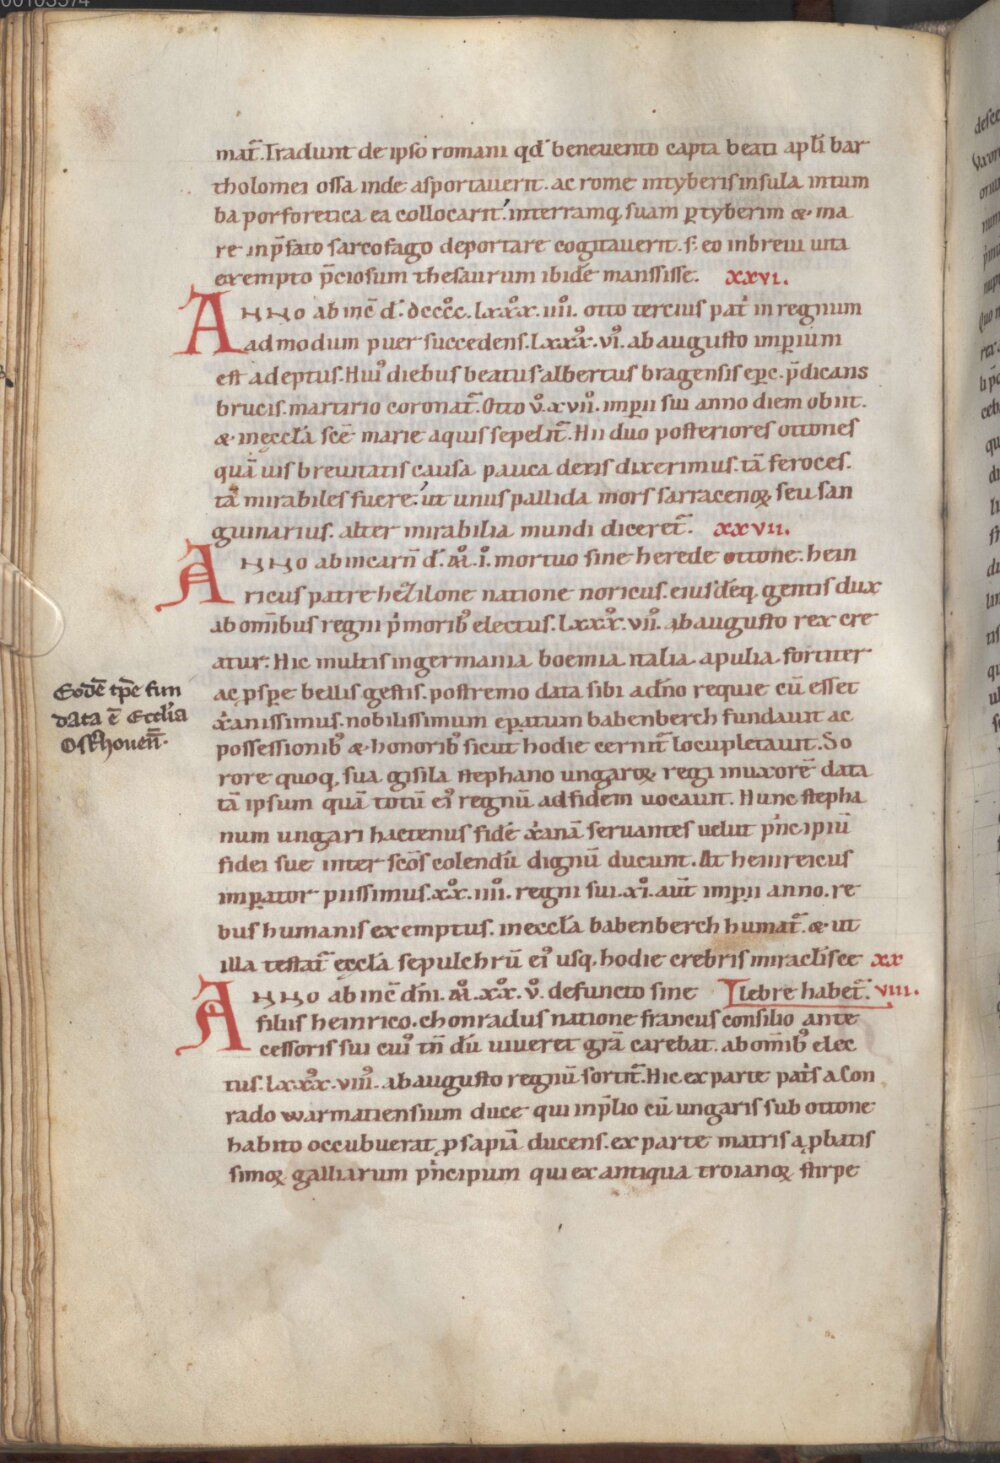 mat̄. Tradunt de ipso romani qd̄ beneuento capta beati apl̄i bar
tholomei ossa inde asportauerit. ac rome intyberis insula intum
ba porforetica ea collocarit. interramq, suam ꝑ tyberim & ma
re in p̄fato sarcofago deportare cogitauerit. s; eo in breui uita
exempto p̄ciosum thesaurum ibidē mansisse. xxvi.
ANNO ab inc̄ d. dcccc. lxxxx. iiii. otto tercius pat̓ in regnum
admodum puer succedens. lxxx. vi. ab augusto imꝑium
est adeptus. Hui᷒ diebus beatus albertus bragensis ep̄c. p̄dicans
brucis. martirio coronat̄. Otto v̊. xvii. imꝑii sui anno diem obiit.
& in eccl̄a scē marie aquis sepelit̄. Hii duo posteriores ottones
quā uis breuitatis causa pauca de eis dixerimus. tā feroces.
tā mirabiles fuere. ut unus pallida mors sarracenoꝝ seu san
guinarius. alter mirabilia mundi diceret̄. xxvii.
ANNO ab incarn̄ d. M. i. mortuo sine herede ottone. hein
ricus patre hezilone natione noricus. eiusdēq, gentis dux
ab om̄ibus regni p̓morib᷒ electus. lxxx. vii. ab augusto rex cre
atur. Hic multis in germania boemia italia apulia fortiter
ac ꝓspe bellis gestis. postremo data sibi a dn̄o requie cū esset
xp̄ianissimus. nobilissimum ep̄atum babenberch fundauit ac
possessionib᷒ & honorib᷒ sicut hodie cernit̄ locupletauit. So
rore quoq, sua gisila stephano ungaroꝝ regi in uxorē data
tā ipsum quā totū ei᷒ regnū ad fidem uocauit. Hunc stepha
num ungari hactenus fidē xp̄ianā seruantes uelut p̓ncipiū
fidei sue inter scōs colendū dignū ducunt. At heinreicus
imꝑator piissimus. xx. iiii. regni sui. xi. aūt imꝑii anno. re
bus humanis exemptus. in eccl̄a babenberch humat̄. & ut
illa testat̄ eccl̄a sepulchrū ei᷒ usq, hodie crebris miracl̄is ce xx
ANNO ab inc̄ dn̄i. M. xx. v. defuncto sine lebre habet̄. viii.
filiis heinrico. chonradus natione francus consilio ante
cessoris sui cui᷒ tn̄ dū uiueret grā carebat. ab om̄ib᷒ elec
tus. lxxx. viii. ab augusto regnū sortit̄. Hic ex parte pat̓s a con
rado warmatiensium duce qui in p̄lio cū ungaris sub ottone
habito occubuerat, ꝓsapiā ducens. ex parte matris a ꝓbatis
simoꝝ galliarum p̓ncipum qui ex antiqua troianoꝝ stirpe
Eodē tp̄e fun
data ē Eccl̄ia
Osthouen̄.